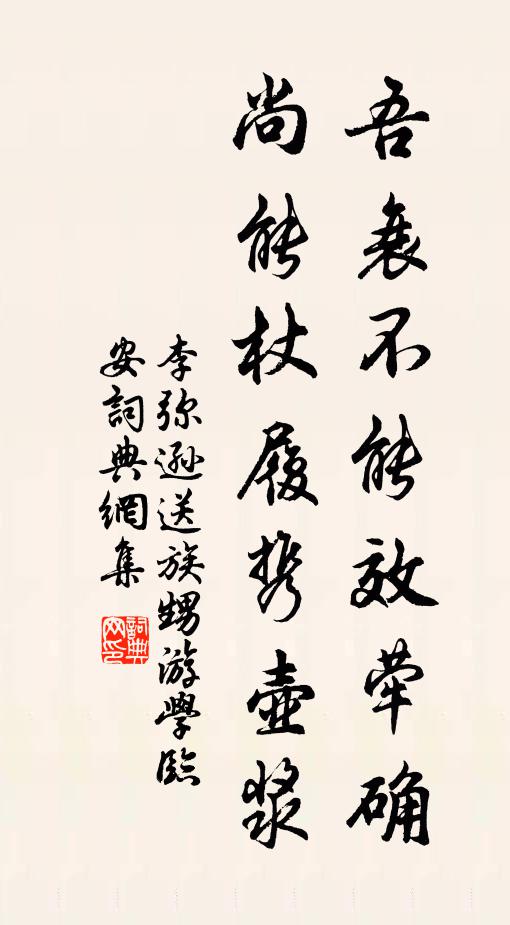 吾衰不能效荦确
尚能杖履携壶浆
李弥逊送族甥游學臨
安詞典網集
詞典网印